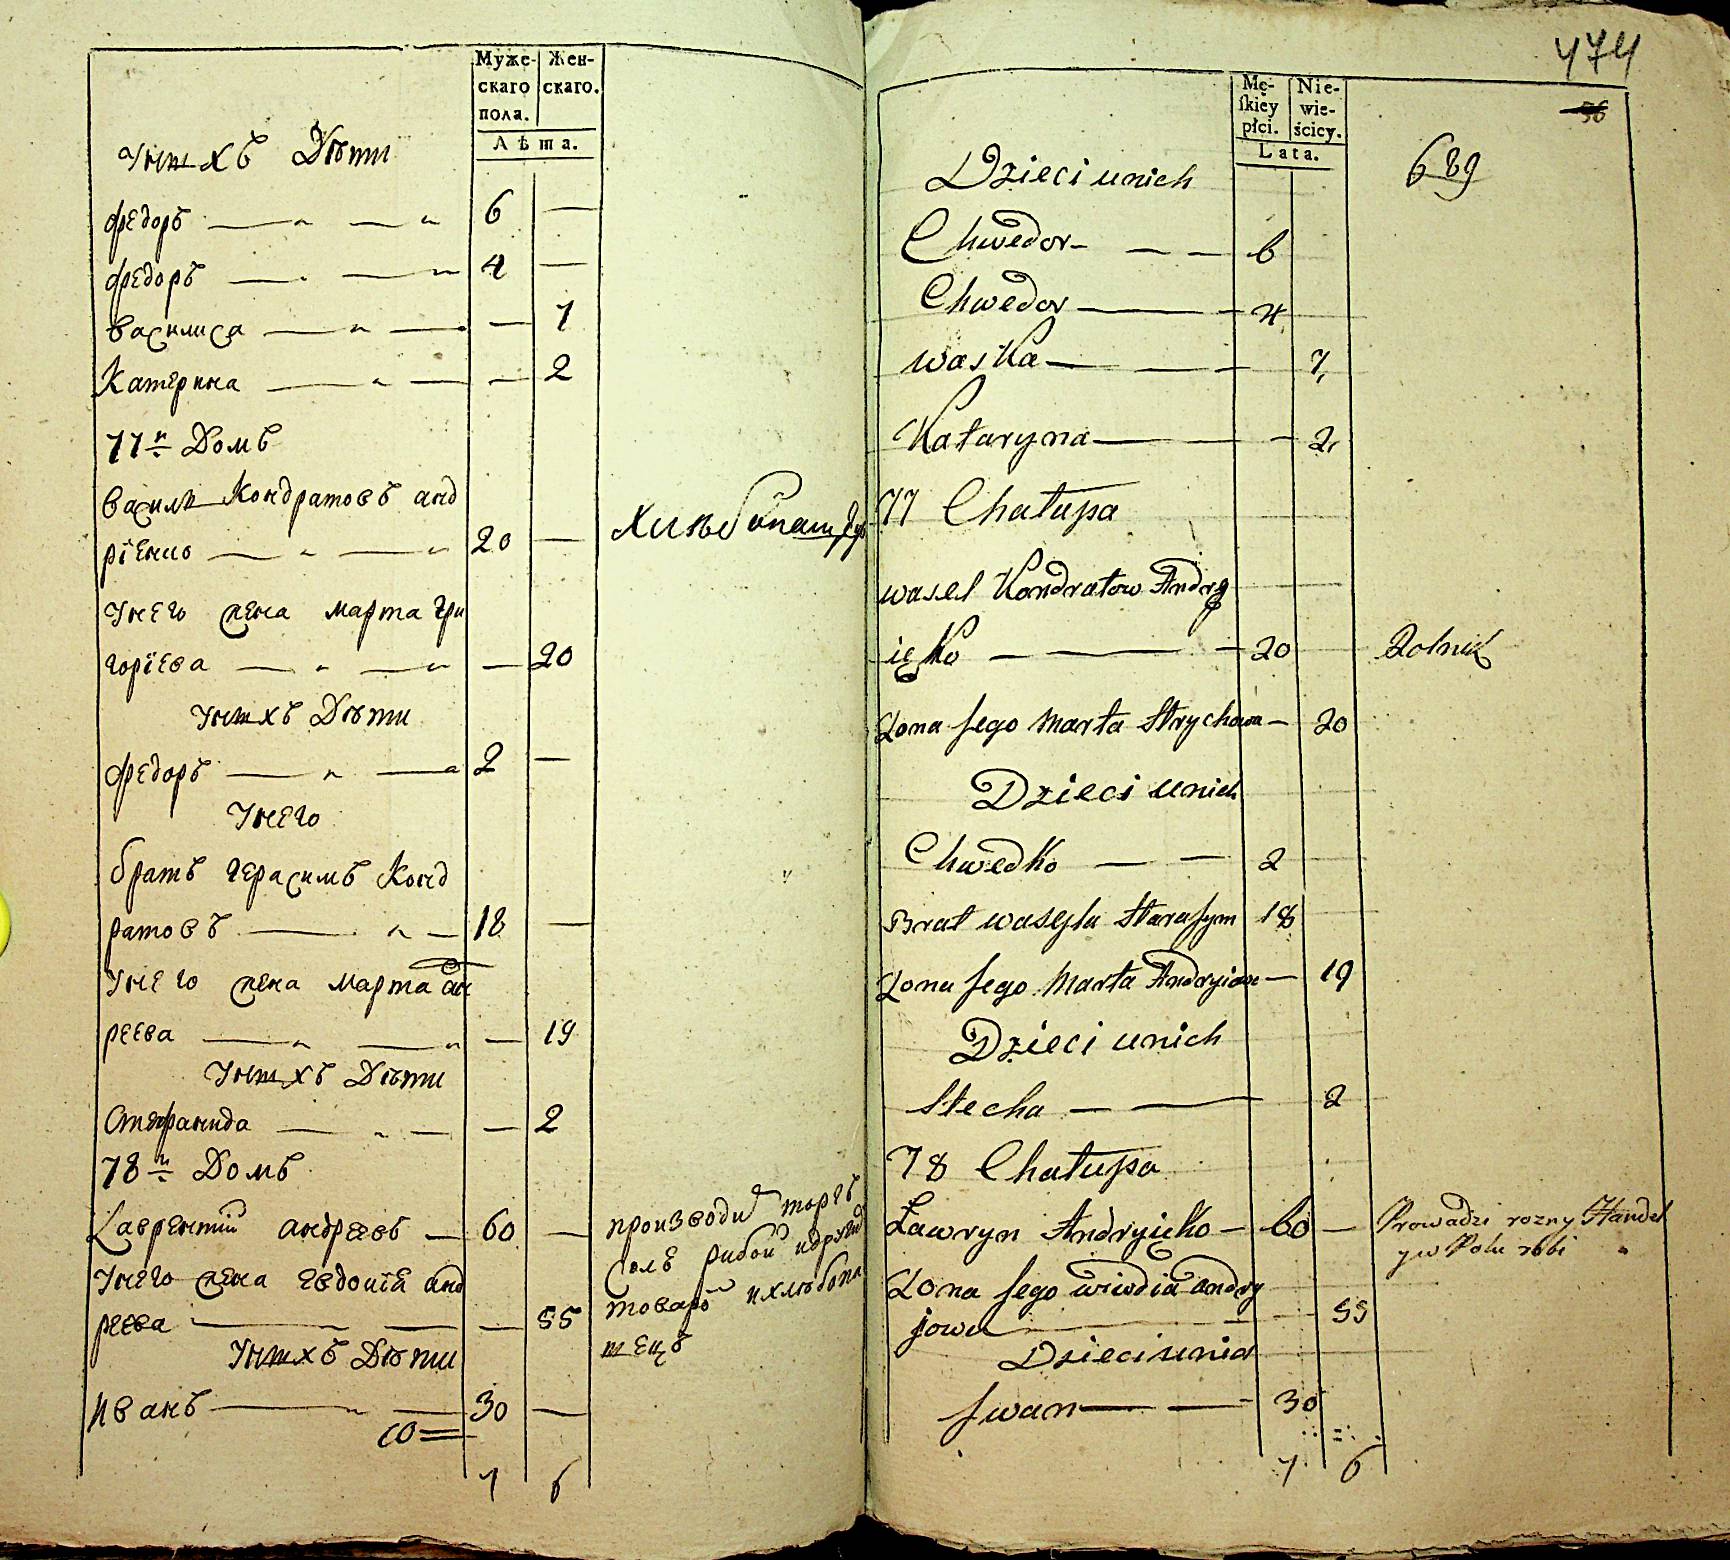 Муже-
скаго
пола.
Жен-
скаго.
Лѣта.
У нихъ Дѣти
Федоръ 6 —
Федоръ 4 —
Василиса — 7
Катерина — 2
77й Домъ
Василь Кондратовъ Анд
ріенко 20 —
У него жена Марта Гри
горіева — 20
У нихъ Дѣти
Федоръ 2 —
У него
братъ Герасимъ Конд
ратовъ 18 —
У него жена Марта Ан
реева — 19
У нихъ Дѣти
Стефанида — 2
78й Домъ
Лаврентій Андреевъ — 60 —
У него жена Евдокія Анд
реева — 55
У нихъ Дѣти
Иванъ 30 —
7 6
хлѣбопашец
производи торгъ
соль рибой и други
товаро и хлѣбопа
шецъ
474
56
689
Mę-
skiey
płci.
Nie-
wie-
ścicy.
Lata.
Dzieci unich
Chwedor — — 6
Chwedor — 4
Waska — — 7
Kataryna — 2
77 Chałupa
Wasel Kondratow Andry
ięko — — 20 Rolnik
Żona Jego Marta Hrychowa — 20
Dzieci unich
Chwedko — — 2
Brat Wasyla Harasym 18
Żona Jego Marta Andryiow — 19
Dzieci unich
Stecha — — 2
78 Chałupa
Ławryn Andryięko — 60 — Prowadzi rozny Handel
y w Polu robi
Żona Jego Wiwdia Andry
jowa 55
Dzieci unich
Jwan — — 30
7 6